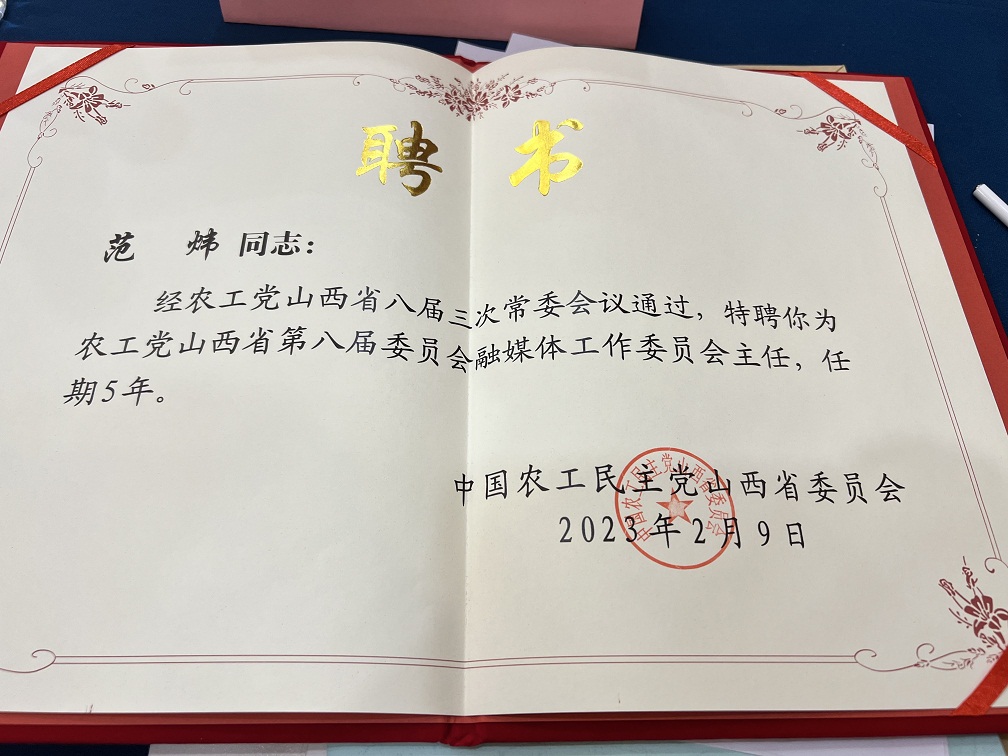 聘书
范 炜 同志：
经农工党山西省八届三次常委会议通过，特聘你为
农工党山西省第八届委员会融媒体工作委员会主任，任
期5年。
中国农工民主党山西省委员会
2023年2月9日
中国农工民主党山西省委员会